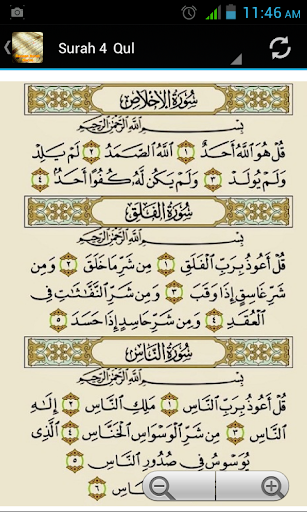 11:46 AM
Surah 4 Qul
سُورَةُ الإِخْلَاصِ
بِسْمِ ٱللَّهِ ٱلرَّحْمَٰنِ ٱلرَّحِيمِ
قُلْ هُوَ ٱللَّهُ أَحَدٌ ١ ٱللَّهُ ٱلصَّمَدُ ٢ لَمْ يَلِدْ
وَلَمْ يُولَدْ ٣ وَلَمْ يَكُن لَّهُۥ كُفُوًا أَحَدٌۢ ٤
سُورَةُ الْفَلَقِ
بِسْمِ ٱللَّهِ ٱلرَّحْمَٰنِ ٱلرَّحِيمِ
قُلْ أَعُوذُ بِرَبِّ ٱلْفَلَقِ ١ مِن شَرِّ مَا خَلَقَ ٢ وَمِن
شَرِّ غَاسِقٍ إِذَا وَقَبَ ٣ وَمِن شَرِّ ٱلنَّفَّٰثَٰتِ فِى
ٱلْعُقَدِ ٤ وَمِن شَرِّ حَاسِدٍ إِذَا حَسَدَ ٥
سُورَةُ النَّاسِ
بِسْمِ ٱللَّهِ ٱلرَّحْمَٰنِ ٱلرَّحِيمِ
قُلْ أَعُوذُ بِرَبِّ ٱلنَّاسِ ١ مَلِكِ ٱلنَّاسِ ٢ إِلَٰهِ
ٱلنَّاسِ ٣ مِن شَرِّ ٱلْوَسْوَاسِ ٱلْخَنَّاسِ ٤ ٱلَّذِى
يُوَسْوِسُ فِى صُدُورِ ٱلنَّاسِ ٥
نَّاسِ ٦